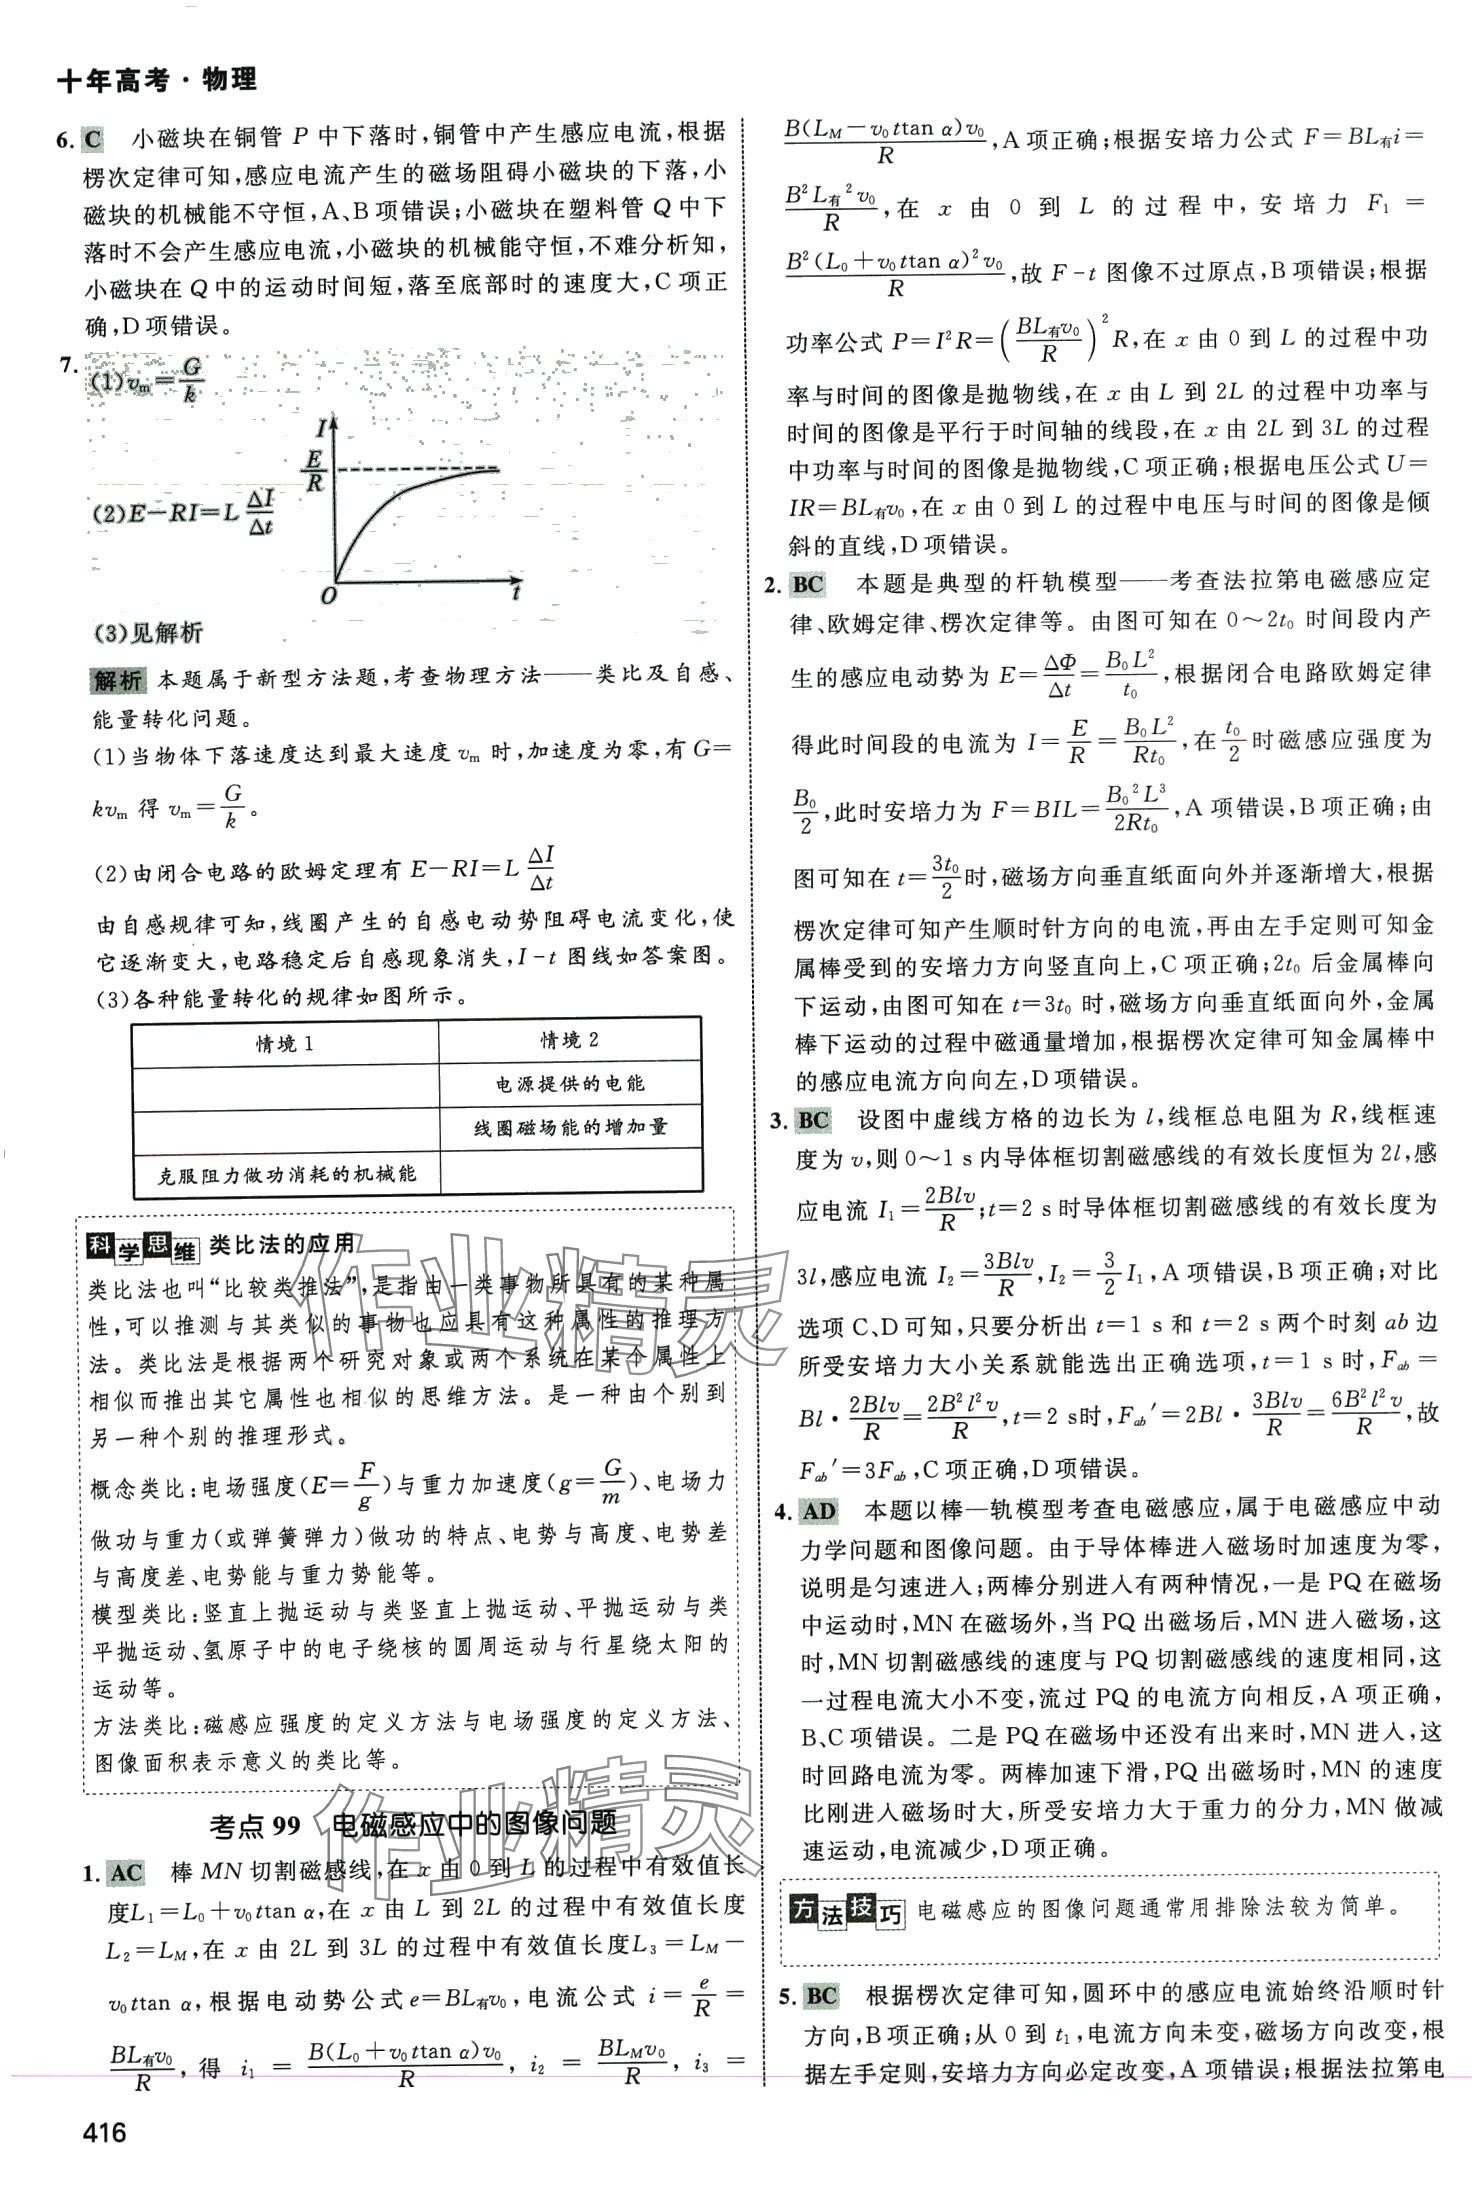 十年高考·物理
6. C 小磁块在铜管 P 中下落时,铜管中产生感应电流,根据
楞次定律可知,感应电流产生的磁场阻碍小磁块的下落,小
磁块的机械能不守恒,A、B项错误;小磁块在塑料管 Q 中下
落时不会产生感应电流,小磁块的机械能守恒,不难分析知,
小磁块在 Q 中的运动时间短,落至底部时的速度大,C 项正
确,D 项错误。
7. (1)vₘ=G/k
(2)E-RI=L ΔI/Δt
I
E/R
O
t
(3)见解析
解析 本题属于新型方法题,考查物理方法——类比及自感、
能量转化问题。
(1)当物体下落速度达到最大速度 vₘ 时,加速度为零,有 G=
kvₘ 得 vₘ=G/k。
(2)由闭合电路的欧姆定理有 E-RI=L ΔI/Δt
由自感规律可知,线圈产生的自感电动势阻碍电流变化,使
它逐渐变大,电路稳定后自感现象消失,I-t 图线如答案图。
(3)各种能量转化的规律如图所示。
情境 1 情境 2
电源提供的电能
线圈磁场能的增加量
克服阻力做功消耗的机械能
科学思维 类比法的应用
类比法也叫“比较类推法”,是指由一类事物所具有的某种属
性,可以推测与其类似的事物也应具有这种属性的推理方
法。类比法是根据两个研究对象或两个系统在某个属性上
相似而推出其它属性也相似的思维方法。是一种由个别到
另一种个别的推理形式。
概念类比:电场强度(E=F/g)与重力加速度(g=G/m)、电场力
做功与重力(或弹簧弹力)做功的特点、电势与高度、电势差
与高度差、电势能与重力势能等。
模型类比:竖直上抛运动与类竖直上抛运动、平抛运动与类
平抛运动、氢原子中的电子绕核的圆周运动与行星绕太阳的
运动等。
方法类比:磁感应强度的定义方法与电场强度的定义方法、
图像面积表示意义的类比等。
考点 99 电磁感应中的图像问题
1. AC 棒 MN 切割磁感线,在 x 由 0 到 L 的过程中有效值长
度L₁=L₀+v₀ttan α,在 x 由 L 到 2L 的过程中有效值长度
L₂=L_M,在 x 由 2L 到 3L 的过程中有效值长度L₃=L_M-
v₀ttan α,根据电动势公式e=BL有v₀,电流公式 i=e/R=
BL有v₀/R,得 i₁=B(L₀+v₀ttan α)v₀/R,i₂=BL_Mv₀/R,i₃=
416
B(L_M-v₀ttan α)v₀/R,A 项正确;根据安培力公式 F=BL有i=
B²L有²v₀/R,在 x 由 0 到 L 的过程中,安培力 F₁=
B²(L₀+v₀ttan α)²v₀/R,故 F-t 图像不过原点,B 项错误;根据
功率公式 P=I²R=(BL有v₀/R)²R,在 x 由 0 到 L 的过程中功
率与时间的图像是抛物线,在 x 由 L 到 2L 的过程中功率与
时间的图像是平行于时间轴的线段,在 x 由 2L 到 3L 的过程
中功率与时间的图像是抛物线,C 项正确;根据电压公式 U=
IR=BL有v₀,在 x 由 0 到 L 的过程中电压与时间的图像是倾
斜的直线,D 项错误。
2. BC 本题是典型的杆轨模型——考查法拉第电磁感应定
律、欧姆定律、楞次定律等。由图可知在 0～2t₀ 时间段内产
生的感应电动势为 E=ΔΦ/Δt=B₀L²/t₀,根据闭合电路欧姆定律
得此时间段的电流为 I=E/R=B₀L²/Rt₀,在 t₀/2 时磁感应强度为
B₀/2,此时安培力为 F=BIL=B₀²L³/2Rt₀,A 项错误,B 项正确;由
图可知在 t=3t₀/2时,磁场方向垂直纸面向外并逐渐增大,根据
楞次定律可知产生顺时针方向的电流,再由左手定则可知金
属棒受到的安培力方向竖直向上,C 项正确;2t₀ 后金属棒向
下运动,由图可知在 t=3t₀ 时,磁场方向垂直纸面向外,金属
棒下运动的过程中磁通量增加,根据楞次定律可知金属棒中
的感应电流方向向左,D 项错误。
3. BC 设图中虚线方格的边长为 l,线框总电阻为 R,线框速
度为 v,则 0～1 s 内导体框切割磁感线的有效长度恒为 2l,感
应电流 I₁=2Blv/R;t=2 s时导体框切割磁感线的有效长度为
3l,感应电流 I₂=3Blv/R,I₂=3/2I₁,A 项错误,B 项正确;对比
选项 C、D 可知,只要分析出 t=1 s 和 t=2 s 两个时刻 ab 边
所受安培力大小关系就能选出正确选项,t=1 s 时,F_ab=
Bl·2Blv/R=2B²l²v/R,t=2 s时,F_ab′=2Bl·3Blv/R=6B²l²v/R,故
F_ab′=3F_ab,C 项正确,D 项错误。
4. AD 本题以棒—轨模型考查电磁感应,属于电磁感应中动
力学问题和图像问题。由于导体棒进入磁场时加速度为零,
说明是匀速进入;两棒分别进入有两种情况,一是 PQ 在磁场
中运动时,MN 在磁场外,当 PQ 出磁场后,MN 进入磁场,这
时,MN 切割磁感线的速度与 PQ 切割磁感线的速度相同,这
一过程电流大小不变,流过 PQ 的电流方向相反,A 项正确,
B、C 项错误。二是 PQ 在磁场中还没有出来时,MN 进入,这
时回路电流为零。两棒加速下滑,PQ 出磁场时,MN 的速度
比刚进入磁场时大,所受安培力大于重力的分力,MN 做减
速运动,电流减少,D 项正确。
方法技巧 电磁感应的图像问题通常用排除法较为简单。
5. BC 根据楞次定律可知,圆环中的感应电流始终沿顺时针
方向,B 项正确;从 0 到 t₁,电流方向未变,磁场方向改变,根
据左手定则,安培力方向必定改变,A 项错误;根据法拉第电
作业精灵
作业精灵